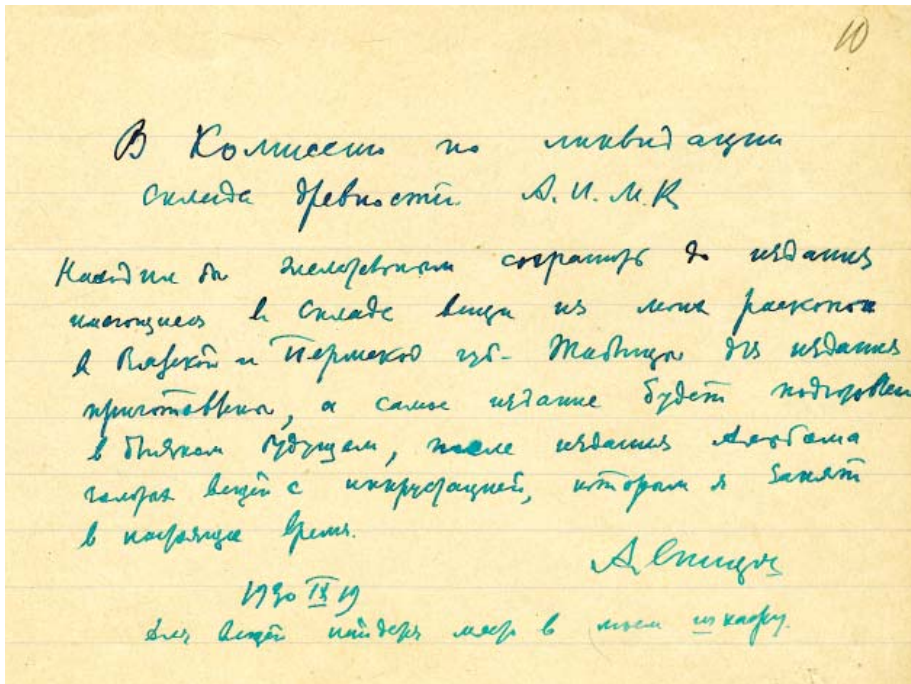 10
В Комиссию по ликвидации
склада древностей А.И.М.К
Находил бы желательным сохранить до издания
имеющиеся в складе вещи из моих раскопок
в Вятской и Пермской губ. Таблицы для издания
приготовлены, а самое издание будет подготовлено
в близком будущем, после издания Альбома
вещей с инкрустацией, которым я занят
в настоящее время.
А. Спицын
1930 IX 19
Для вещей найдется место в моем шкафу.